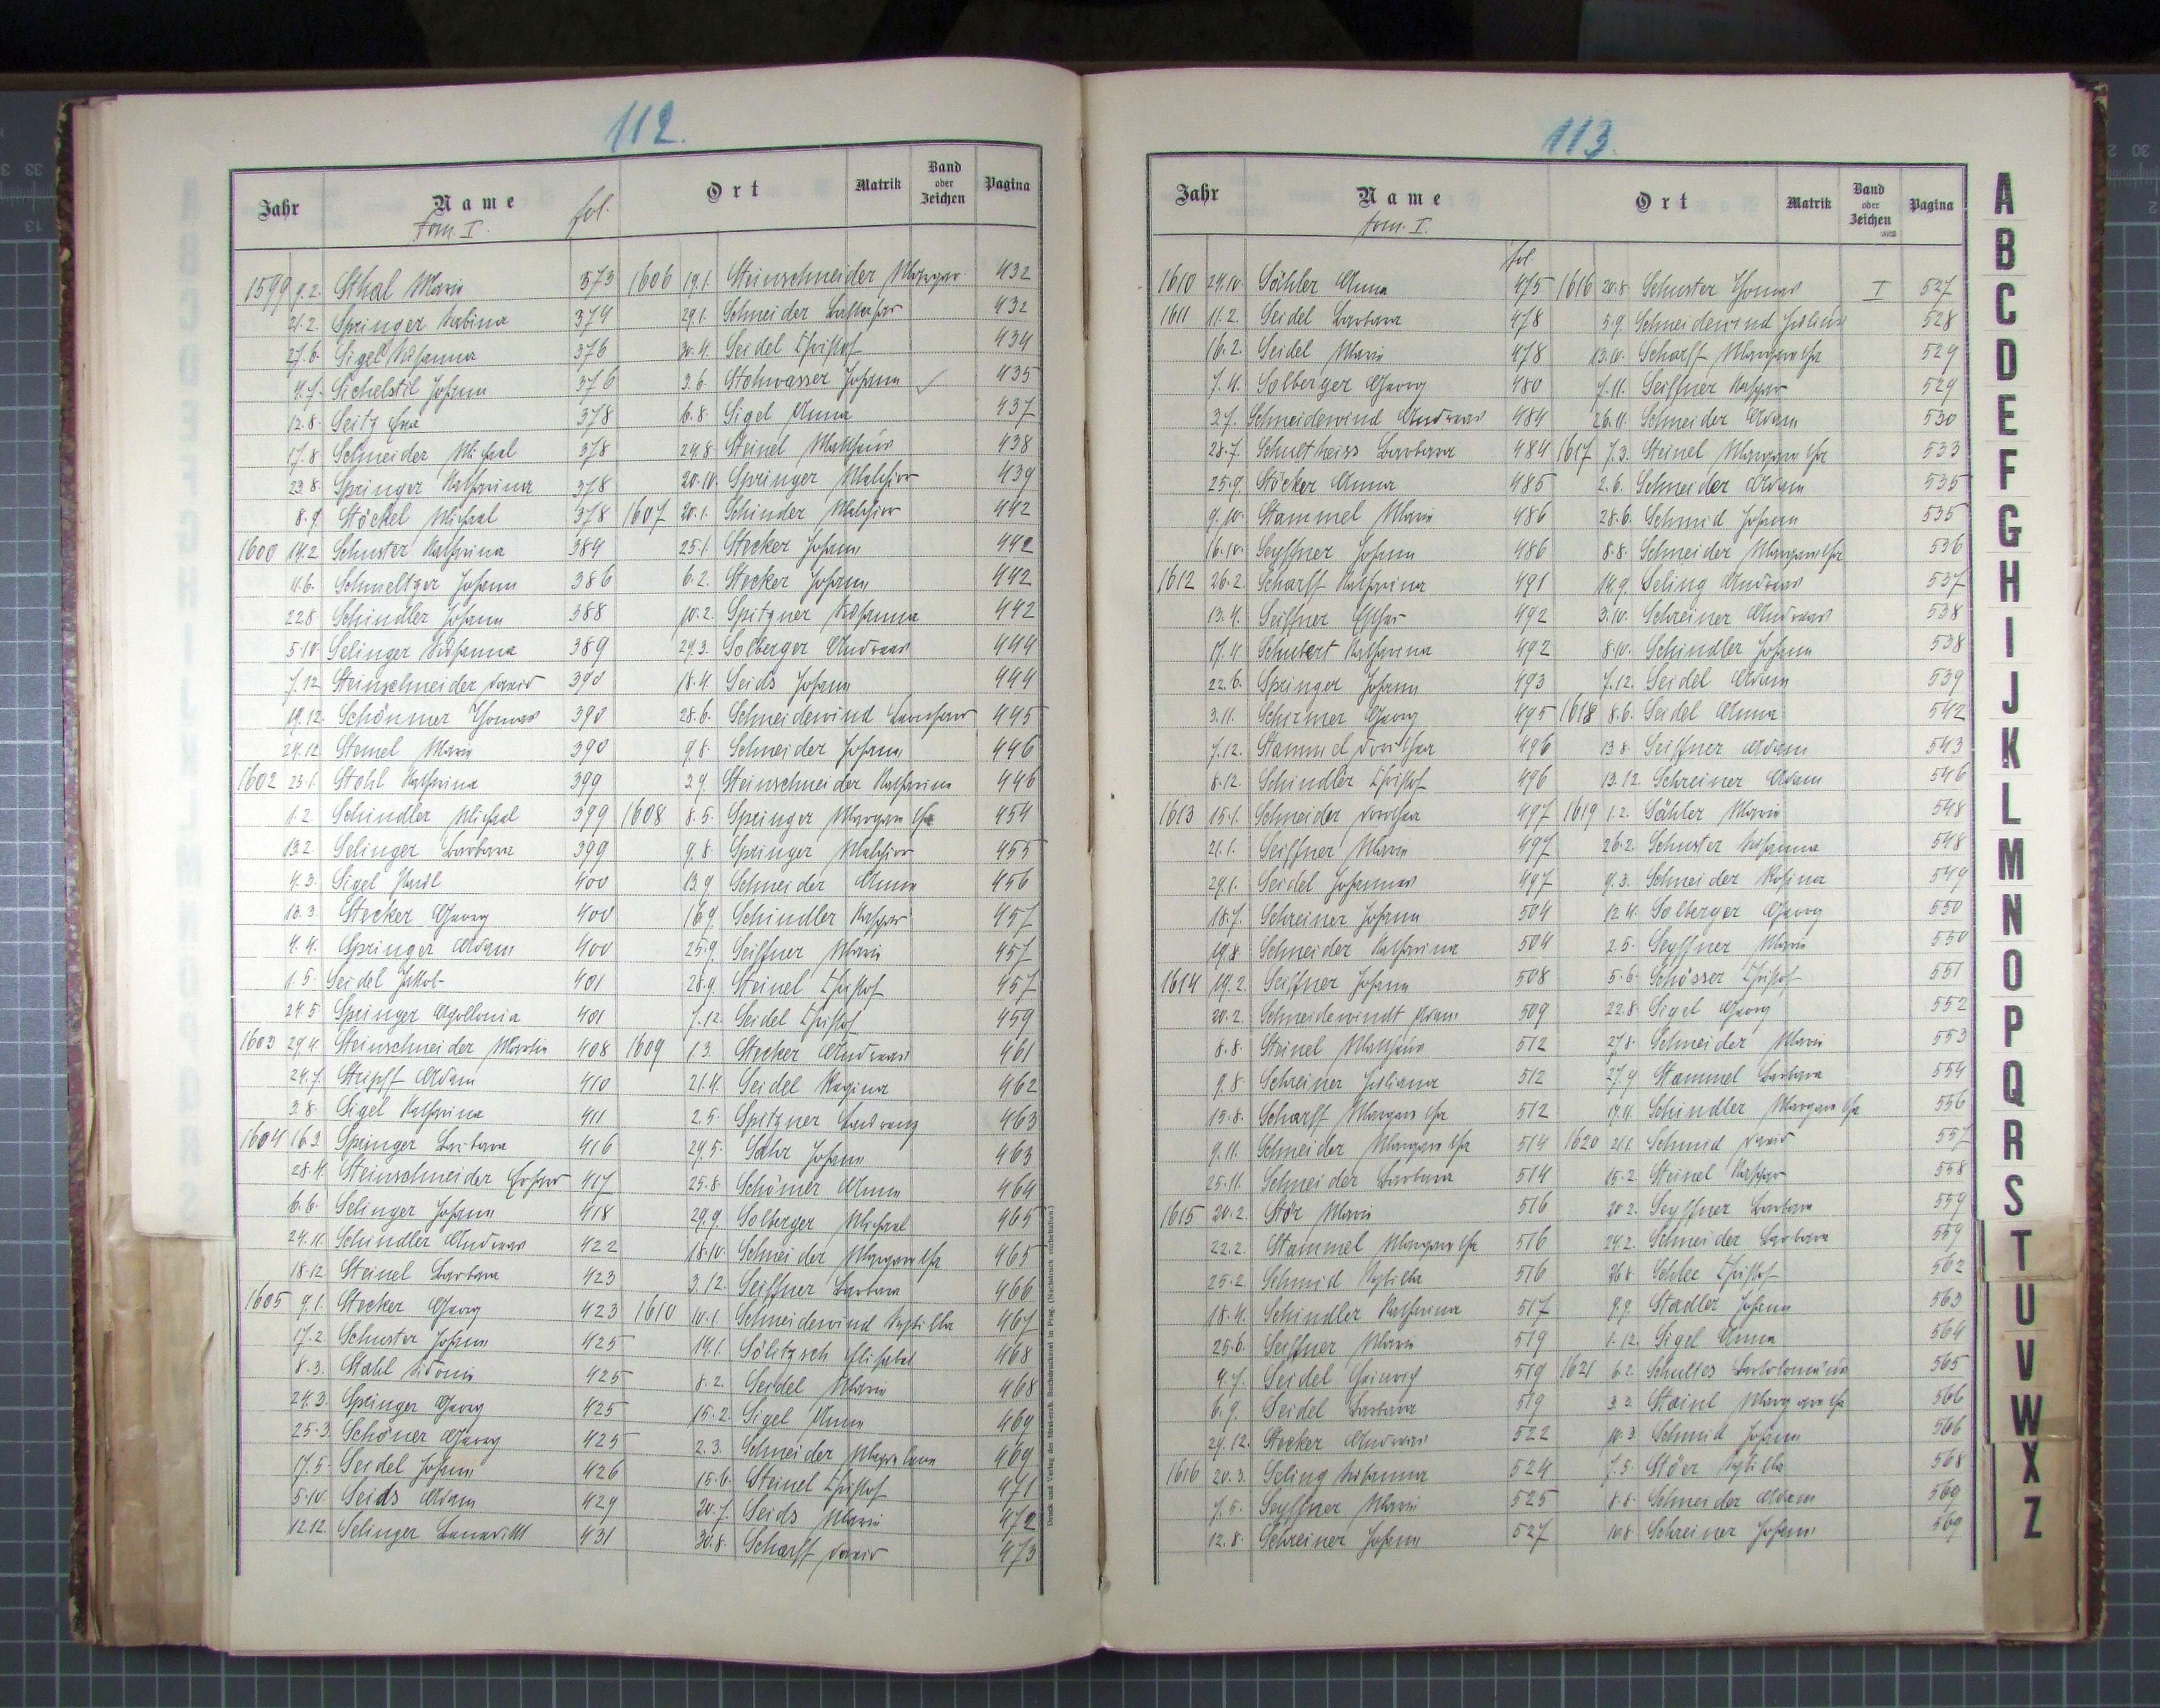 112.
Jahr Name Ort Matrik Band oder Zeichen Pagina
tom. I. fol.
1599 9.2. Sthal Maria 373
21.2. Springer Sabina 374
27.6. Sigel Susanna 376
4.7. Sichelstil Johann 376
12.8. Seitz Eva 378
17.8. Schneider Michael 378
23.8. Springer Katharina 378
8.9. Stöckel Michael 378
1600 14.2. Schuster Katharina 384
11.6. Schmeltzer Johann 386
22.8. Schindler Johann 388
5.10. Selinger Susanna 389
7.12. Steinschneider David 390
19.12. Schönmer Thomas 390
24.12. Stemel Maria 390
1602 23.1. Stohl Katharina 399
1.2. Schindler Michael 399
13.2. Selinger Barbara 399
4.3. Sigel Paul 400
13.3. Stecker Georg 400
4.4. Springer Adam 400
1.5. Seidel Jakob 401
24.5. Springer Apollonia 401
1603 29.4. Steinschneider Martin 408
24.7. Stripff Adam 410
3.8. Sigel Katharina 411
1604 16.3. Springer Barbara 416
28.4. Steinschneider Erhar 417
6.6. Selinger Johann 418
24.11. Schindler Andreas 422
18.12. Steinel Barbara 423
1605 9.1. Stecker Georg 423
17.2. Schuster Johann 425
8.3. Stahl Sidonia 425
24.3. Springer Georg 425
25.3. Schöner Georg 425
17.5. Seidel Johann 426
5.10. Seids Adam 429
12.12. Selinger 431
1606 19.1. Steinschneider Margar 432
29.1. Schneider Balthasar 432
30.4. Seidel Christof 434
3.6. Stohwasser Johann ✓ 435
6.8. Sigel Anna 437
24.8. Steinel Matthäus 438
20.10. Springer Melchior 439
1607 20.1. Schinder Melchior 442
25.1. Stecker Johann 442
6.2. Stecker Johann 442
10.2. Spitzner Susanna 442
29.3. Solberger Andreas 444
18.4. Seids Johann 444
28.6. Schneidewind 445
9.8. Schneider Johann 446
3.9. Steinschneider Katharina 446
1608 8.5. Springer Margaretha 454
9.8. Springer Melchior 455
13.9. Schneider Anna 456
16.9. Schindler Kaspar 457
25.9. Seiffner Maria 457
28.9. Steinel Christof 457
7.12. Seidel Christof 459
1609 1.3. Stecker Andreas 461
21.4. Seidel Regina 462
2.5. Spitzner 463
29.5. Sahr Johann 463
25.8. Schömer Anna 464
29.9. Solberger Michael 465
18.10. Schneider Margaretha 465
3.12. Seiffner Barbara 466
1610 10.1. Schneidewind Sybilla 467
14.1. Söhtzsch Elisabet 468
8.2. Seidel Maria 468
15.2. Sigel Anna 469
2.3. Schneider Magdalena 469
15.6. Steinel Christof 471
20.7. Seids Maria 472
30.8. Scharff David 473
113.
Jahr Name Ort Matrik Band oder Zeichen Pagina
tom. I.
fol
1610 24.10. Sähler Anna 475
1611 11.2. Seidel Barbara 478
16.2. Seidel Maria 478
7.4. Solberger Georg 480
3.7. Schneidewind Andreas 484
28.7. Schultheiss Barbara 484
25.9. Stöcker Anna 485
9.10. Stammel Maria 486
16.10. Seyffner Johann 486
1612 26.2. Scharff Katharina 491
13.4. Seiffner Esther 492
17.4. Schubert Katharina 492
22.6. Springer Johann 493
3.11. Schirmer Georg 495
7.12. Stammel Dorothea 496
8.12. Schindler Christof 496
1613 15.1. Schneider Dorothea 497
21.1. Seiffner Maria 497
29.1. Seidel Johannes 497
18.7. Schreiner Johann 504
19.8. Schneider Katharina 504
1614 19.2. Seiffner Johann 508
20.2. Schneidewindt Adam 509
8.8. Steinel Matthäus 512
9.8. Schreiner Juliana 512
15.8. Scharff Margaretha 512
9.11. Schneider Margaretha 514
25.11. Schneider Barbara 514
1615 20.2. Stör Maria 516
22.2. Stammel Margaretha 516
25.2. Schmid Sybilla 516
18.4. Schindler Katharina 517
25.6. Seiffner Maria 519
4.7. Seidel Heinrich 519
6.9. Seidel Barbara 519
29.12. Stecker Andreas 522
1616 20.3. Seling Susanna 524
7.5. Seyffner Maria 525
12.8. Schreiner Johann 527
1616 20.8. Schuster Thomas I 527
5.9. Schneidewind Julius 528
13.10. Scharff Margaretha 529
7.11. Seiffner Kaspar 529
26.11. Schneider Adam 530
1617 7.3. Steinel Margaretha 533
2.6. Schneider Adam 535
28.6. Schmid Johann 535
8.8. Schneider Margaretha 536
14.9. Seling Andreas 537
3.10. Schreiner Andreas 538
8.10. Schindler Johann 538
7.12. Seidel Adam 539
1618 8.6. Seidel Anna 542
13.8. Seiffner Adam 543
13.12. Schreiner Adam 546
1619 1.2. Sähler Maria 548
26.2. Schuster Susanna 548
9.3. Schneider Rosina 549
12.4. Solberger Georg 550
2.5. Seyffner Maria 550
5.6. Schösser Christof 551
22.8. Sigel Georg 552
27.8. Schneider Maria 553
27.9. Stammel Barbara 554
17.11. Schindler Margaretha 556
1620 21.1. Schmid David 557
15.2. Steinel Kaspar 558
20.2. Seyffner Barbara 559
24.2. Schneider Barbara 559
26.8. Schlee Christof 562
9.9. Stadler Johann 563
1.12. Sigel Anna 564
1621 6.2. Schultes Bartolomäus 565
3.3. Stainl Margaretha 566
10.3. Schmid Johann 566
7.5. Stöer Sybilla 568
8.8. Schneider Adam 569
10.8. Schreiner Johann 569
Druck und Verlag der fürst-erzb. Buchdruckerei in Prag. (Nachdruck vorbehalten.)
A
B
C
D
E
F
G
H
I
J
K
L
M
N
O
P
Q
R
S
T
U
V
W
X
Z